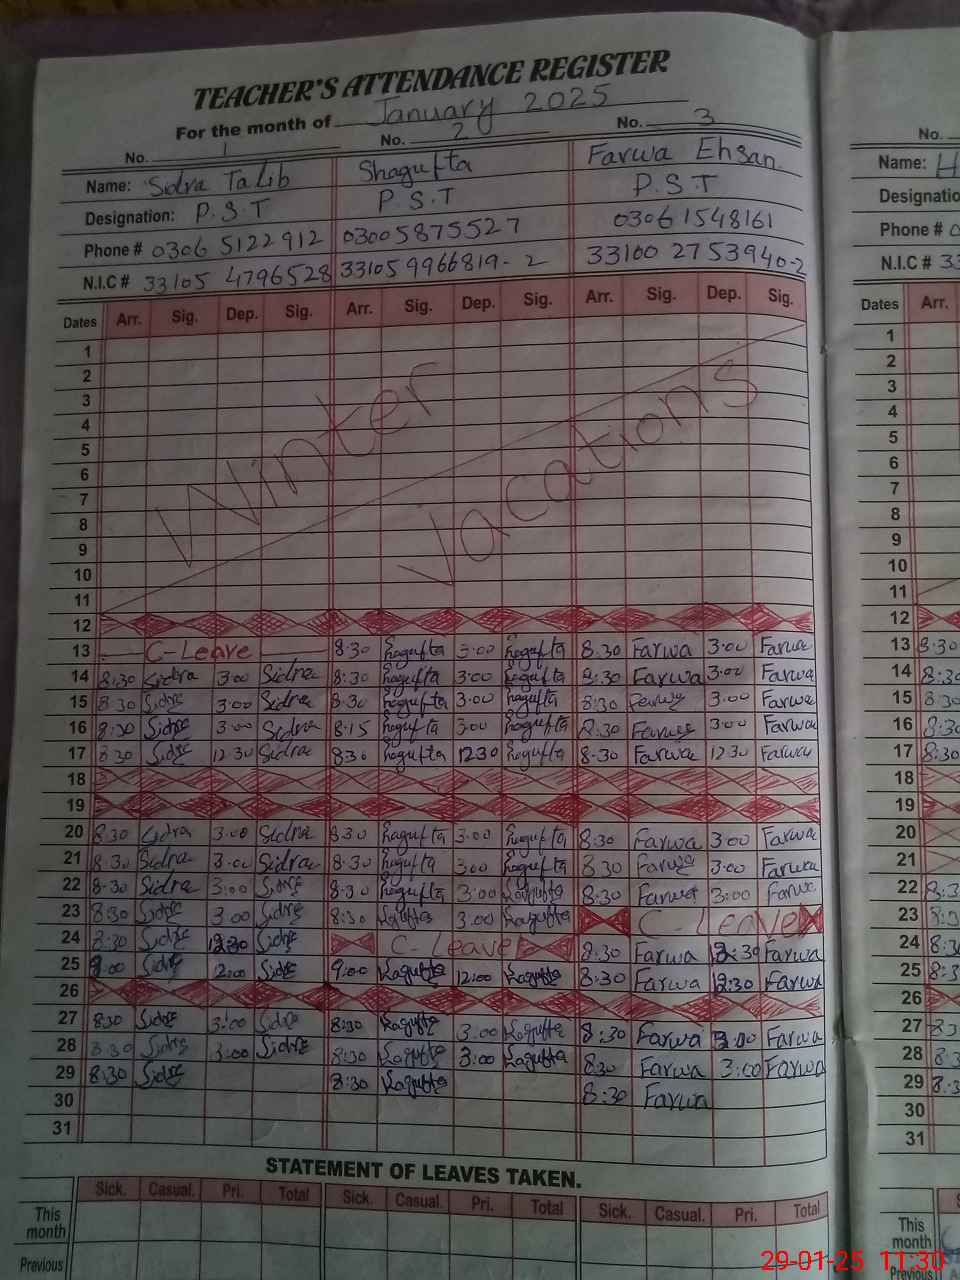 TEACHER'S ATTENDANCE REGISTER
For the month of January 2025
No. 1 No. 2 No. 3 No.
Name: Sidra Talib Shagufta Farwa Ehsan Name: H
Designation: P.S.T P.S.T P.S.T Designation
Phone # 0306 5122912 03005875527 03061548161 Phone # 0
N.I.C # 33105 4796528 331059966819-2 33100 2753940-2 N.I.C # 33
Dates Arr. Sig. Dep. Sig. Arr. Sig. Dep. Sig. Arr. Sig. Dep. Sig. Dates Arr.
1 1
2 2
3 3
4 4
5 5
6 6
7 7
8 8
9 9
10 10
11 11
Winter Vacations
12 12
13 C-Leave 8:30 Shagufta 3:00 Shagufta 8:30 Farwa 3:00 Farwa 13 8:30
14 8:30 Sidra 3:00 Sidra 8:30 Shagufta 3:00 Shagufta 8:30 Farwa 3:00 Farwa 14 8:30
15 8:30 Sidra 3:00 Sidra 8:30 Shagufta 3:00 Shagufta 8:30 Farwa 3:00 Farwa 15 8:30
16 8:30 Sidra 3:00 Sidra 8:15 Shagufta 3:00 Shagufta 8:30 Farwa 3:00 Farwa 16 8:30
17 8:30 Sidra 12:30 Sidra 8:30 Shagufta 12:30 Shagufta 8:30 Farwa 12:30 Farwa 17 8:30
18 18
19 19
20 8:30 Sidra 3:00 Sidra 8:30 Shagufta 3:00 Shagufta 8:30 Farwa 3:00 Farwa 20
21 8:30 Sidra 3:00 Sidra 8:30 Shagufta 3:00 Shagufta 8:30 Farwa 3:00 Farwa 21
22 8:30 Sidra 3:00 Sidra 8:30 Shagufta 3:00 Shagufta 8:30 Farwa 3:00 Farwa 22
23 8:30 Sidra 3:00 Sidra 8:30 Shagufta 3:00 Shagufta C-Leave 23
24 8:30 Sidra 12:30 Sidra C-Leave 8:30 Farwa 12:30 Farwa 24
25 9:00 Sidra 12:00 Sidra 9:00 Shagufta 12:00 Shagufta 8:30 Farwa 12:30 Farwa 25
26 26
27 8:30 Sidra 3:00 Sidra 8:30 Shagufta 3:00 Shagufta 8:30 Farwa 3:00 Farwa 27
28 8:30 Sidra 3:00 Sidra 8:30 Shagufta 3:00 Shagufta 8:30 Farwa 3:00 Farwa 28
29 8:30 Sidra 8:30 Shagufta 8:30 Farwa 29
30 30
31 31
STATEMENT OF LEAVES TAKEN.
Sick. Casual. Pri. Total Sick. Casual. Pri. Total Sick. Casual. Pri. Total
This month This month
Previous Previous
29-01-25 11:30